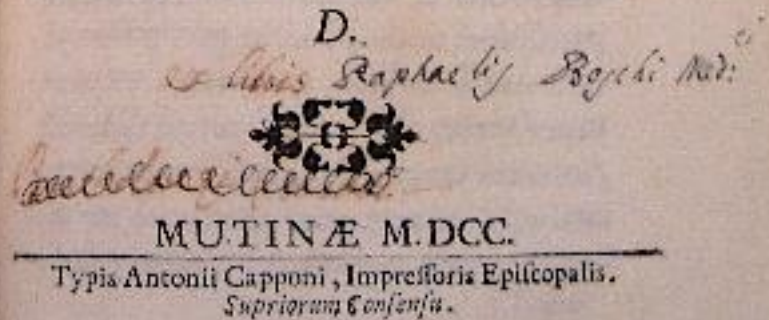 D.
ex libris Raphaelis Boschi Med:ci
MUTINÆ M.DCC.
Typis Antonii Capponi, Impreſſoris Epiſcopalis.
Superiorum Conſenſu.